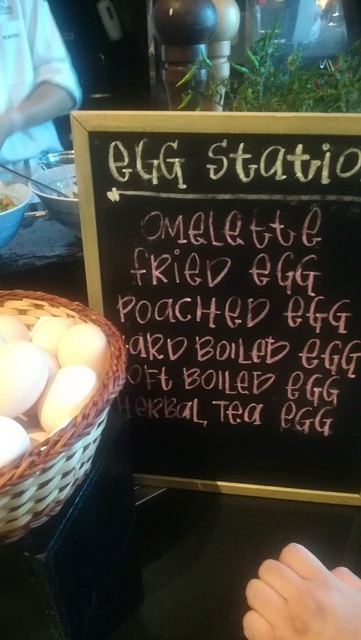 EGG Statio
OMELETTE
FRIED EGG
POACHED EGG
ARD BOILED EGG
OFT BOILED EGG
HERBAL TEA EGG